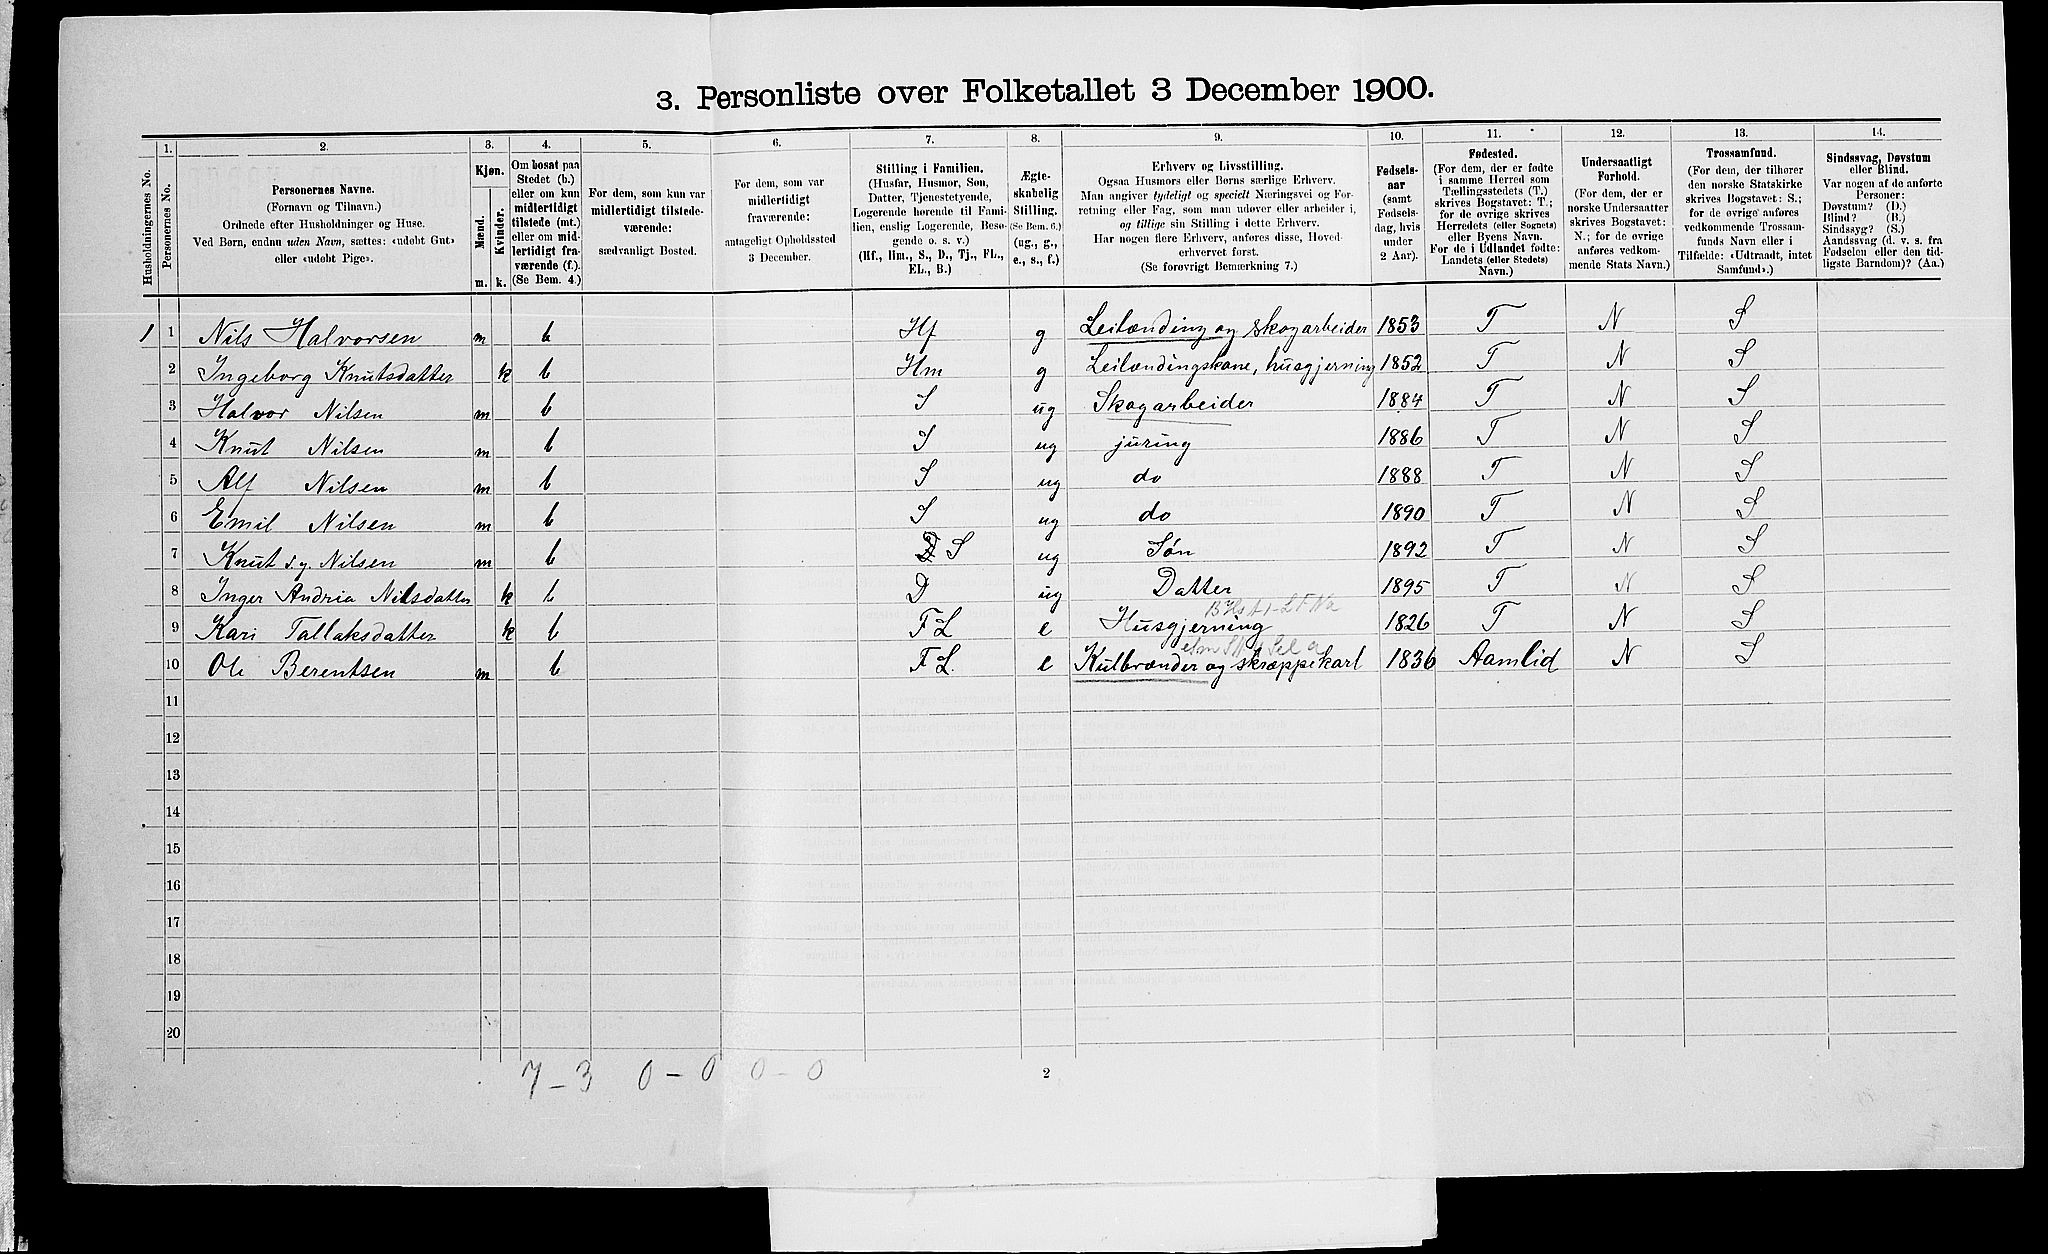 3. Personliste over Folketallet 3 December 1900.
Husholdningernes No.
1.
Personernes No.
2.
Personernes Navne.
(Fornavn og Tilnavn.)
Ordnede efter Husholdninger og Huse.
Ved Børn, endnu uden Navn, sættes: «udøbt Gut»
eller «udøbt Pige».
3.
Kjøn.
Mænd.
Kvinder.
m. k.
4.
Om bosat paa
Stedet (b.)
eller om kun
midlertidigt
tilstede (mt.)
eller om mid-
lertidigt fra-
værende (f.).
(Se Bem. 4.)
5.
For dem, som kun var
midlertidigt tilstede-
værende:
sædvanligt Bosted.
6.
For dem, som var
midlertidigt
fraværende:
antageligt Opholdssted
3 December.
7.
Stilling i Familien.
(Husfar, Husmor, Søn,
Datter, Tjenestetyende,
Logerende hørende til Fami-
lien, enslig Logerende, Besø-
gende o. s. v.)
(Hf., Hm., S., D., Tj., FL.,
EL., B.)
8.
Ægte-
skabelig
Stilling.
(Se Bem. 6.)
(ug., g.,
e., s., f.)
9.
Erhverv og Livsstilling.
Ogsaa Husmors eller Børns særlige Erhverv.
Man angiver tydeligt og specielt Næringsvei og For-
retning eller Fag, som man udøver eller arbeider i,
og tillige sin Stilling i dette Erhverv.
Har nogen flere Erhverv, anføres disse, Hoved-
erhvervet først.
(Se forøvrigt Bemærkning 7.)
10.
Fødsels-
aar
(samt
Fødsels-
dag, hvis
under
2 Aar).
11.
Fødested.
(For dem, der er fødte
i samme Herred som
Tællingsstedets (T.)
skrives Bogstavet: T.;
for de øvrige skrives
Herredets (eller Sognets)
eller Byens Navn.
For de i Udlandet fødte:
Landets (eller Stedets)
Navn.)
12.
Undersaatligt
Forhold.
(For dem, der er
norske Undersaatter
skrives Bogstavet:
N.; for de øvrige
anføres vedkom-
mende Stats Navn.)
13.
Trossamfund.
(For dem, der tilhører
den norske Statskirke
skrives Bogstavet: S.;
for de øvrige anføres
vedkommende Trossam-
funds Navn eller i
Tilfælde: «Udtraadt, intet
Samfund».)
14.
Sindssvag, Døvstum
eller Blind.
Var nogen af de anførte
Personer:
Døvstum? (D.)
Blind? (B.)
Sindssyg? (S.)
Aandssvag (d. v. s. fra
Fødselen eller den tid-
ligste Barndom)? (Aa.)
1 1 Nils Halvorsen m b Hf g Leilænding og skogarbeider 1853 T N S
2 Ingeborg Knutsdatter k b Hm g Leilændingskone, husgjerning 1852 T N S
3 Halvor Nilsen m b S ug Skogarbeider 1884 T N S
4 Knut Nilsen m b S ug juring 1886 T N S
5 Alf Nilsen m b S ug do 1888 T N S
6 Emil Nilsen m b S ug do 1890 T N S
7 Knut d.y. Nilsen m b D S ug Søn 1892 T N S
8 Inger Andria Nilsdatter k b D ug Datter 1895 T N S
9 Kari Tallaksdatter k b FL e Husgjerning 1826 T N S
10 Ole Berentsen m b FL. e Kulbrænder og skræppekarl 1836 Aamlid N S
11
12
13
14
15
16
17
18
19
20
7-3 0-0 0-0
2